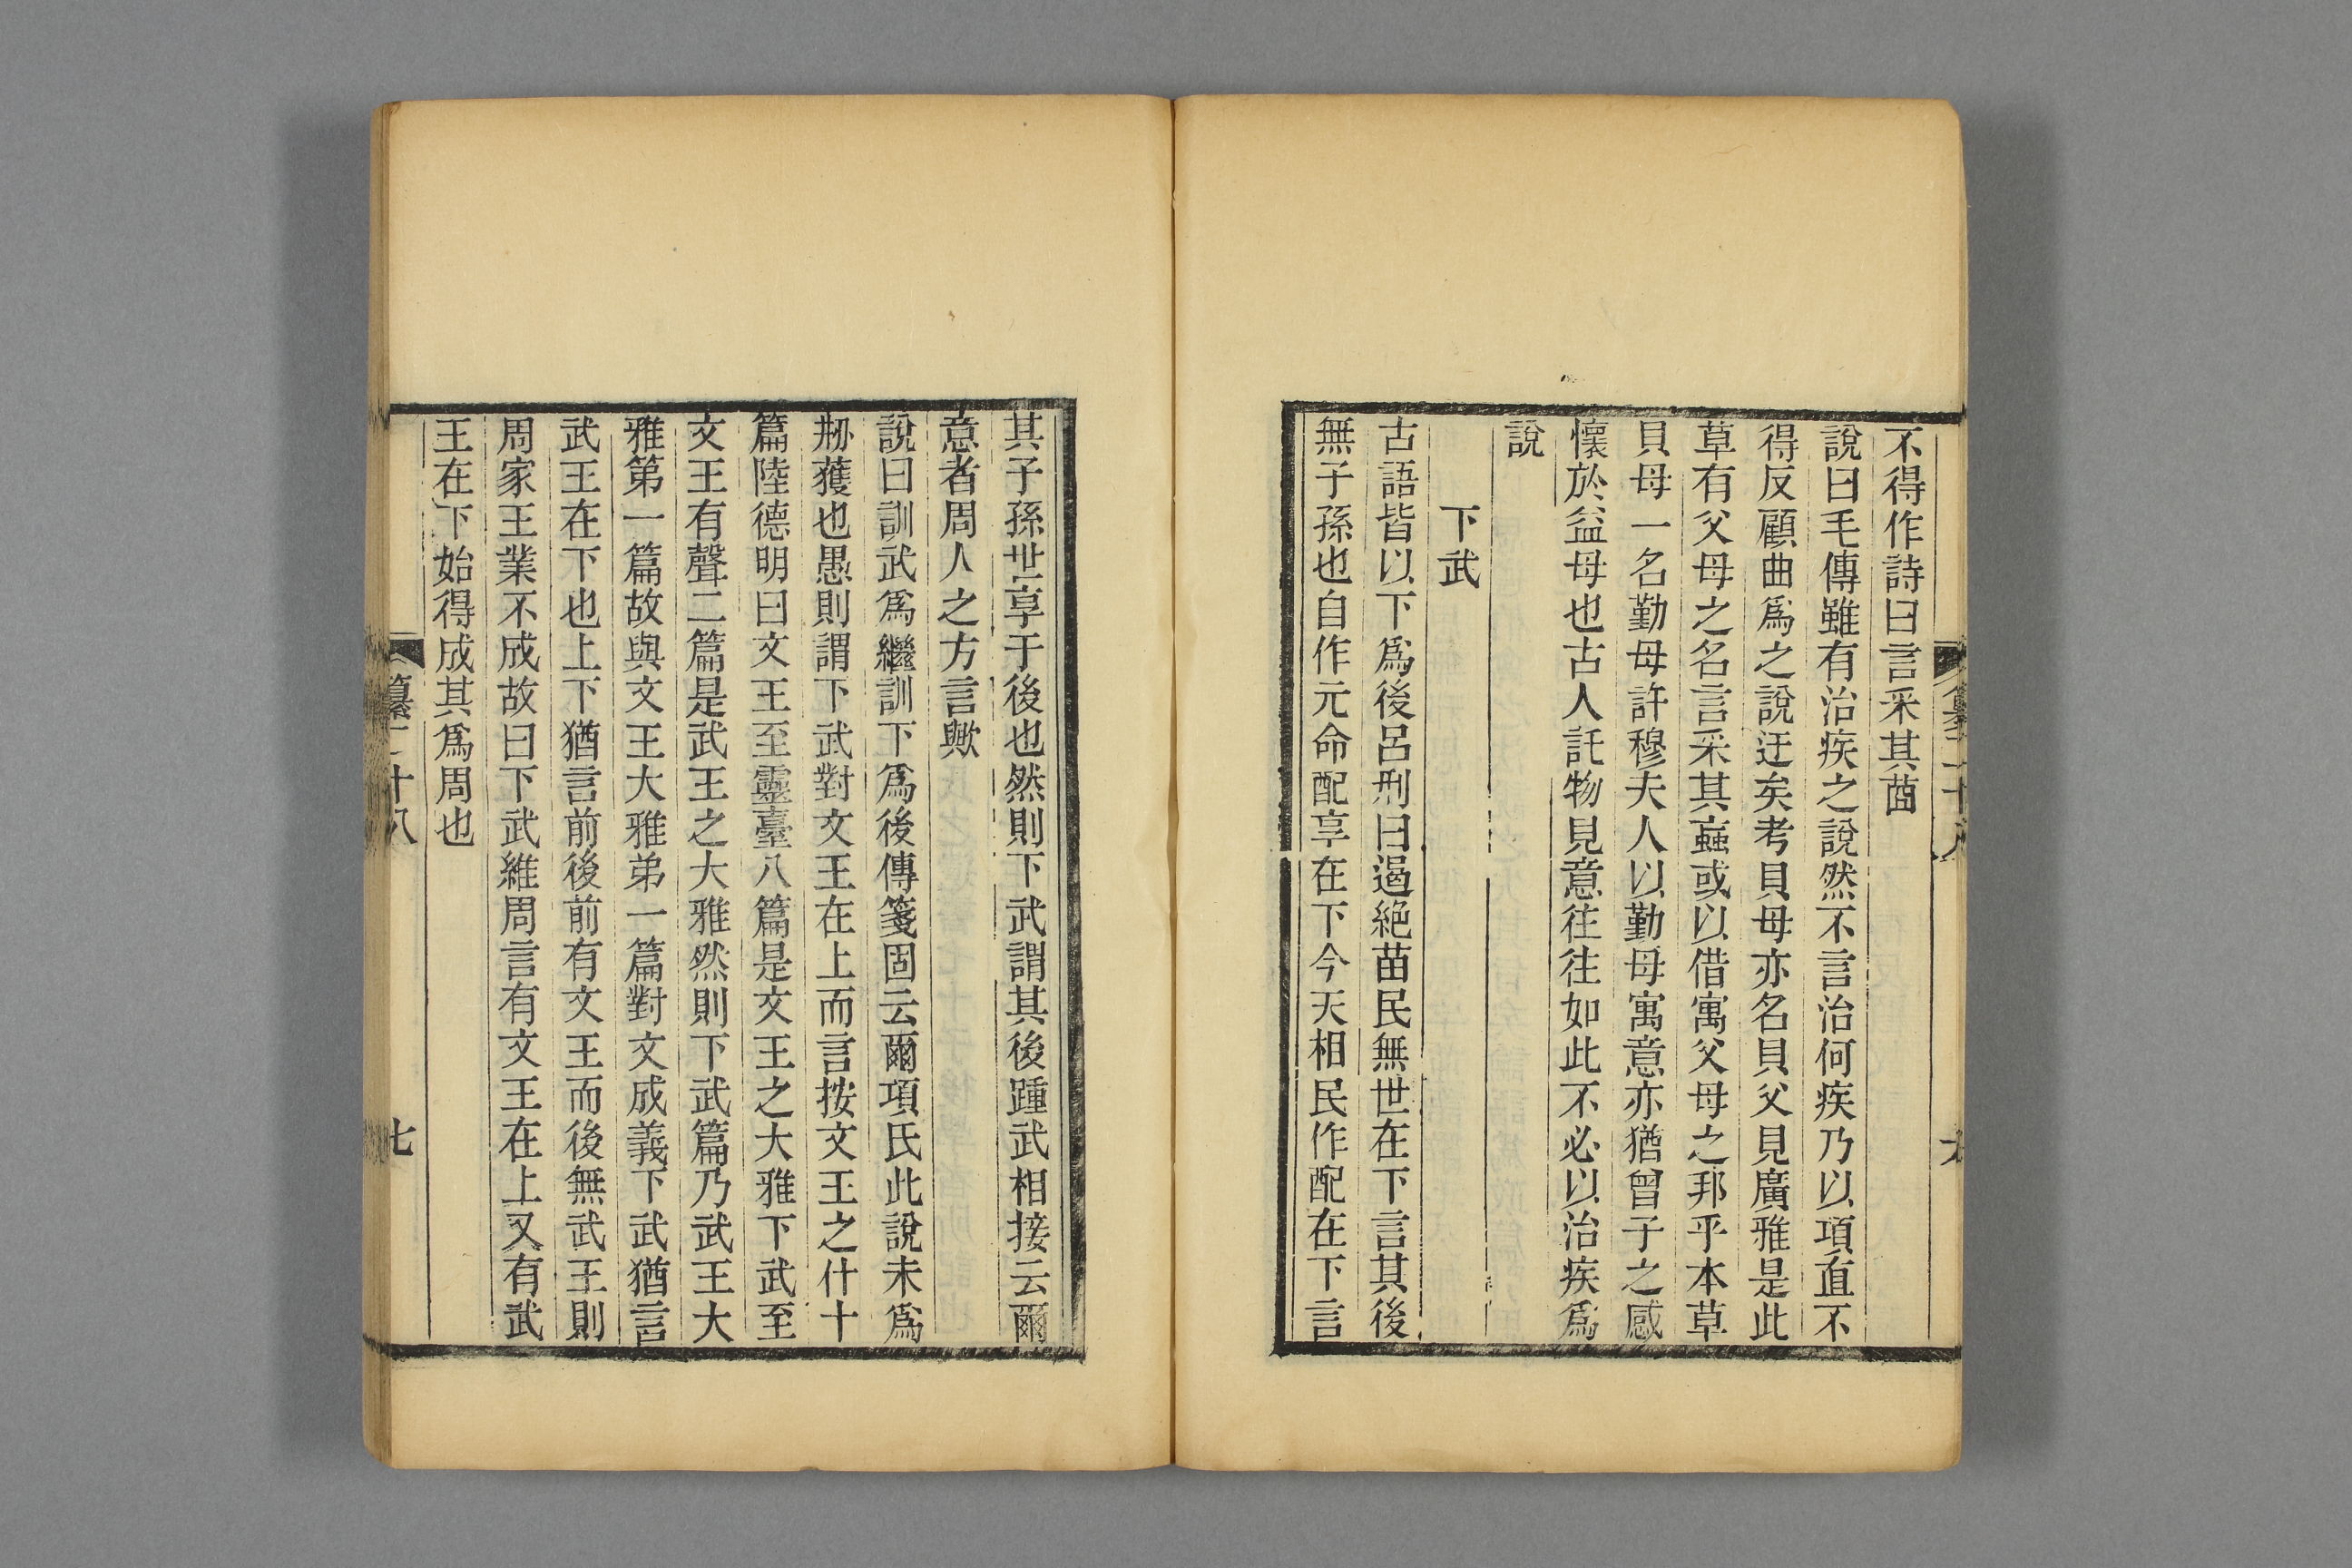 不得作詩曰言采其莔
說曰毛傳雖有治疾之說然不言治何疾乃以項直不
得反顧曲爲之說迂矣考貝母亦名貝父見廣雅是此
草有父母之名言采其蝱或以借寓父母之邦乎本草
貝母一名勤母許穆夫人以勤母寓意亦猶曾子之感
懷於益母也古人託物見意往往如此不必以治疾爲
說
下武
古語皆以下爲後呂刑曰遏絕苗民無世在下言其後
無子孫也自作元命配享在下今天相民作配在下言
其子孫世享于後也然則下武謂其後踵武相接云爾
意者周人之方言歟
說曰訓武爲繼訓下爲後傳箋固云爾項氏此說未爲
刱獲也愚則謂下武對文王在上而言按文王之什十
篇陸德明曰文王至靈臺八篇是文王之大雅下武至
文王有聲二篇是武王之大雅然則下武篇乃武王大
雅第一篇故與文王大雅弟一篇對文成義下武猶言
武王在下也上下猶言前後前有文王而後無武王則
周家王業不成故曰下武維周言有文王在上又有武
王在下始得成其爲周也
纂二十八
七